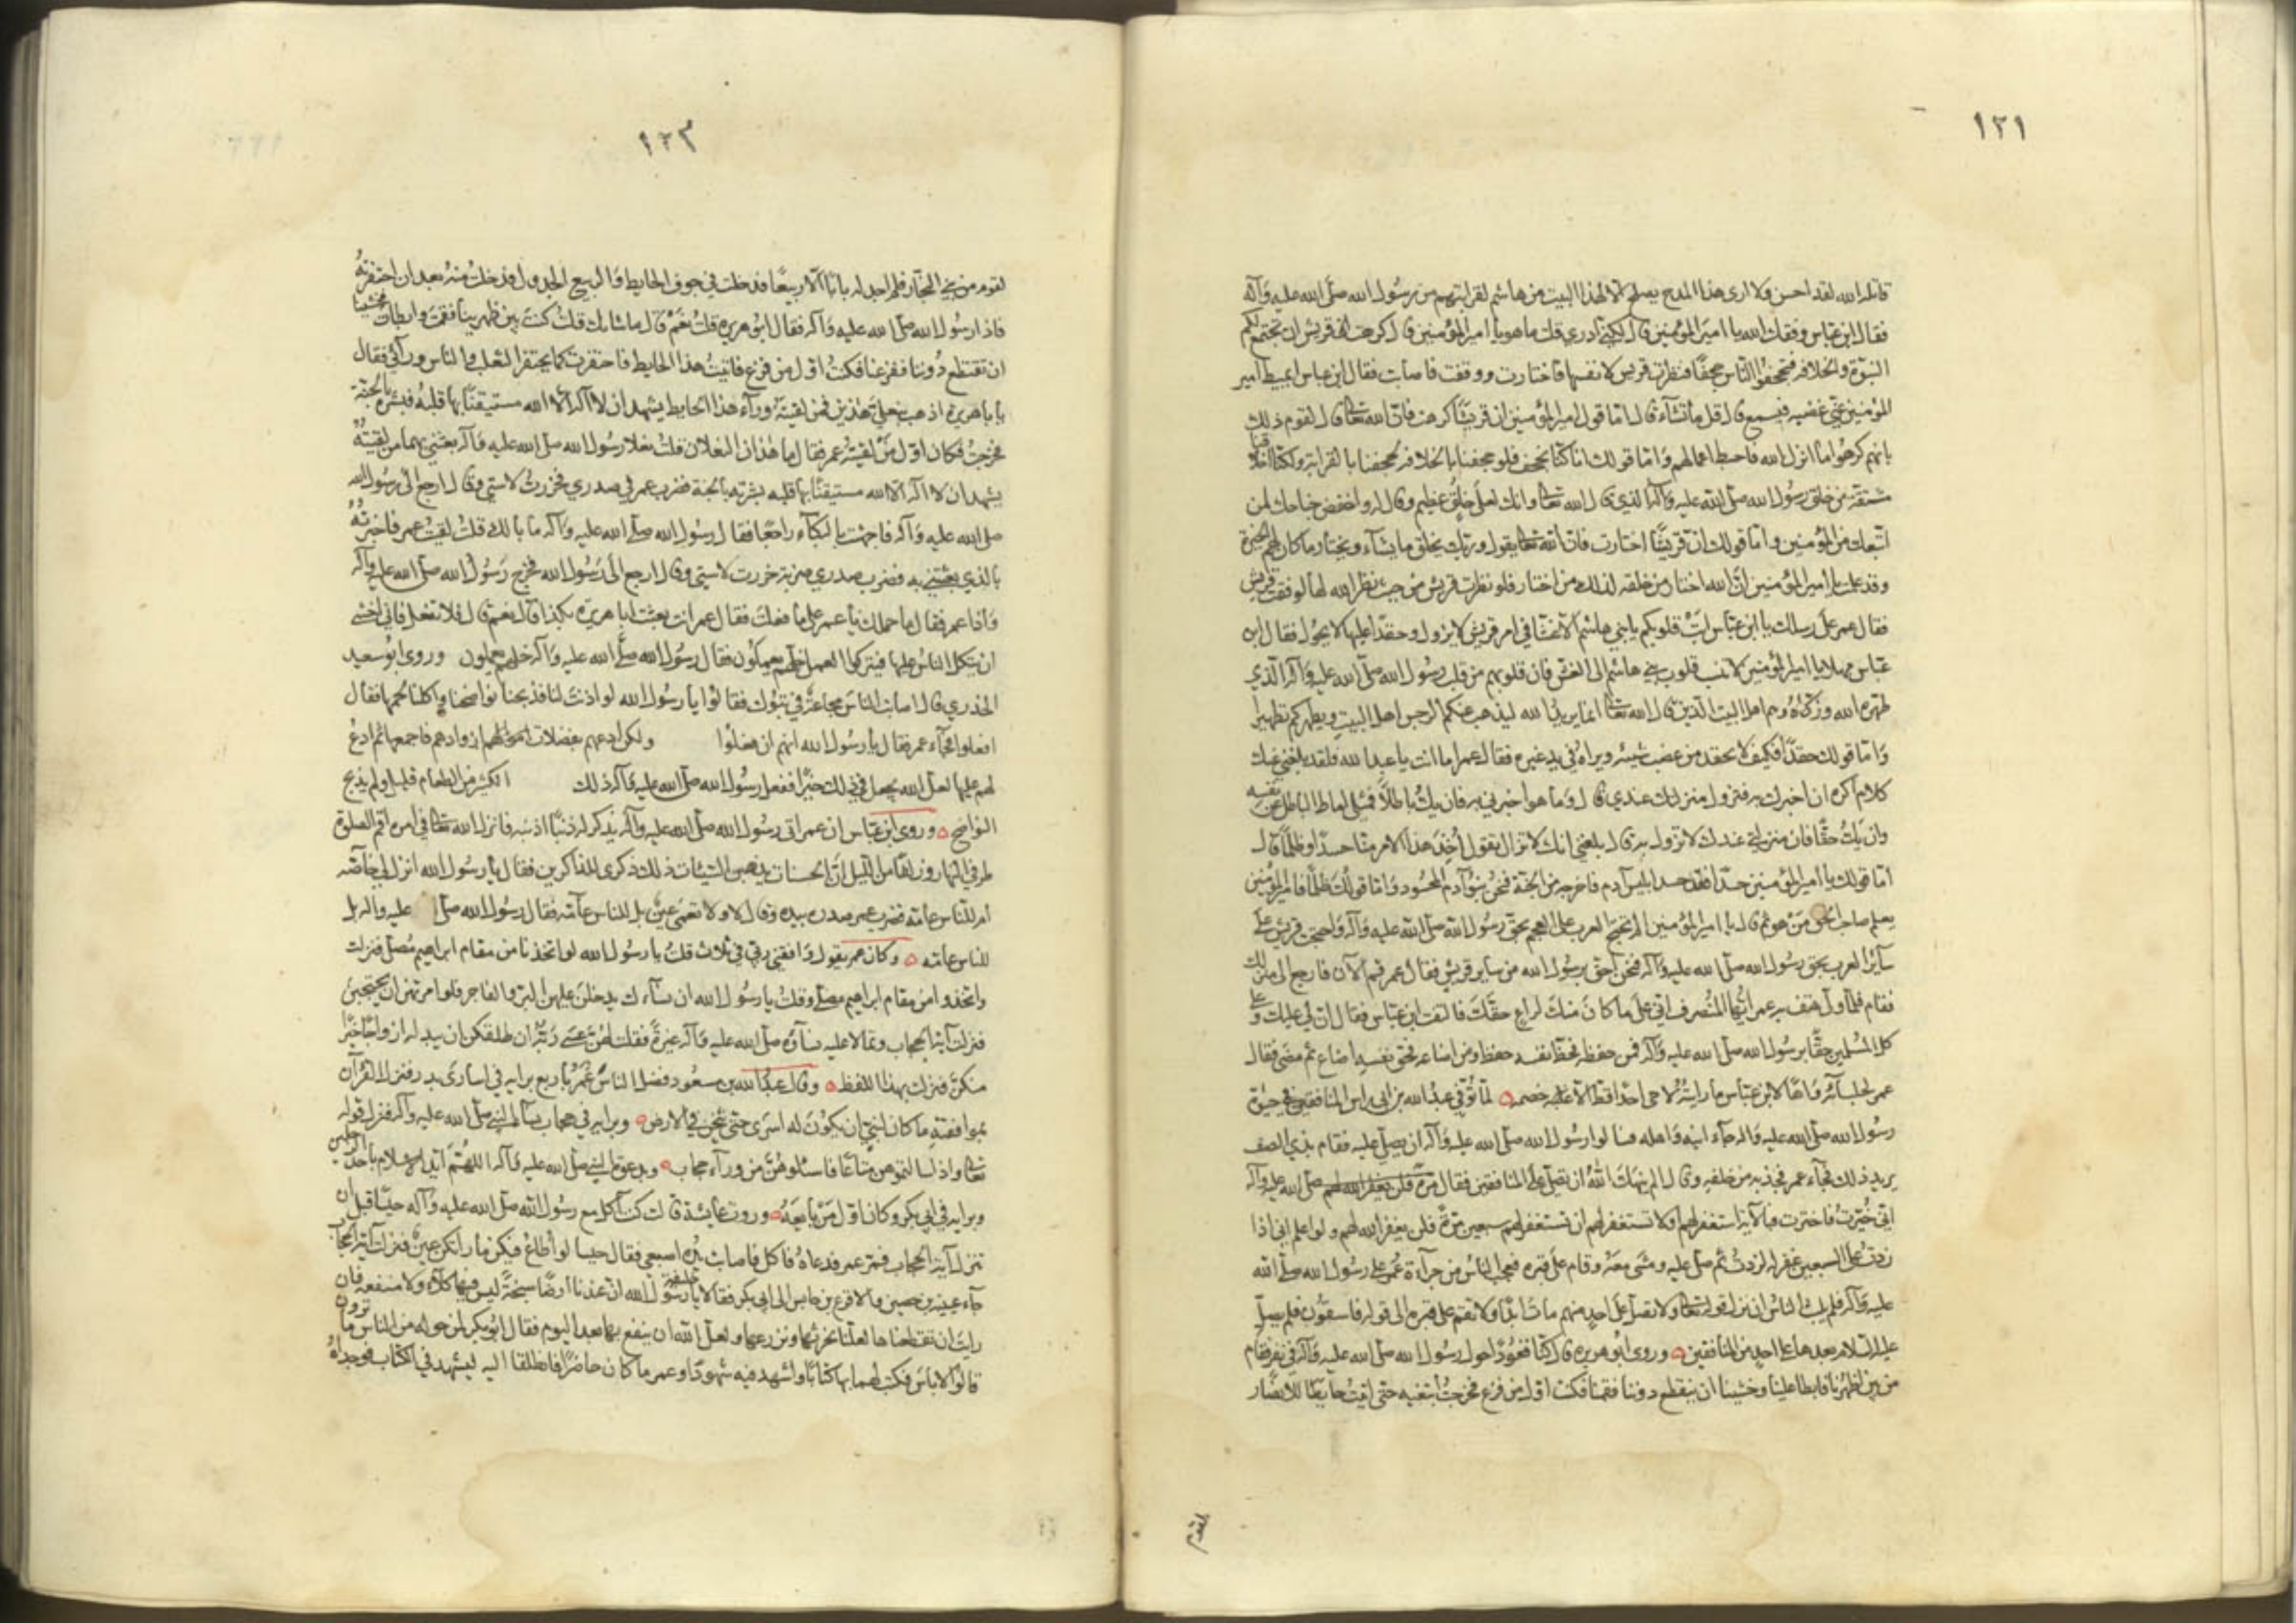 ١٢١
قاتله الله لقد احسن ولا ارى هذا المدح يصلح الا لهذا البيت من هاشم لقرابتهم من رسول الله صلى الله عليه وآله
فقال ابن عباس وفقك الله يا امير المؤمنين قال لكني ادري قلت ما هو يا امير المؤمنين قال كرهت قريش ان تجتمع لكم
النبوة والخلافة فتجحفوا الناس جحفا فنظرت قريش لانفسها فاختارت ووفقت فاصابت فقال ابن عباس ايميط امير
المؤمنين عني غضبه فيسمع قال قل ما تشاء قال اما قول امير المؤمنين ان قريشا كرهت فان الله تعالى قال لقوم ذلك
بانهم كرهوا ما انزل الله فاحبط اعمالهم واما قولك انا كنا نجحف فلو جحفنا بالخلافة لجحفنا بالقرابة ولكنا اخلاقنا
مشتقة من خلق رسول الله صلى الله عليه وآله الذي قال الله تعالى وانك لعلى خلق عظيم وقال له واخفض جناحك لمن
اتبعك من المؤمنين واما قولك ان قريشا اختارت فان الله تعالى يقول وربك يخلق ما يشاء ويختار ما كان لهم الخيرة
وقد علمت يا امير المؤمنين ان الله اختار من خلقه لذلك من اختار فلو نظرت قريش من حيث نظر الله لها لوفقت قريش
فقال عمر على رسلك يا ابن عباس ابت قلوبكم يا بني هاشم الا غشا في امر قريش لا يزول وحقدا عليها لا يحول فقال ابن
عباس مهلا يا امير المؤمنين لا تنسب قلوب بني هاشم الى الغش فان قلوبهم من قلب رسول الله صلى الله عليه وآله الذي
طهره الله وزكاه وهم اهل البيت الذين قال الله تعالى انما يريد الله ليذهب عنكم الرجس اهل البيت ويطهركم تطهيرا
واما قولك حقدا فكيف لا يحقد من غصب شيئه ويراه في يد غيره فقال عمر اما انت يا عبد الله فلقد بلغني عنك
كلام اكره ان اخبرك به فتزول منزلتك عندي قال وما هو اخبرني به فان يك باطلا فمثلي اماط الباطل عن نفسه
وان يك حقا فان منزلتي عندك لا تزول به قال بلغني انك لا تزال تقول اخذ هذا الامر منا حسدا وظلما قال
اما قولك يا امير المؤمنين حسدا فقد حسد ابليس آدم فاخرجه من الجنة فنحن بنو آدم المحسود واما قولك ظلما فامير المؤمنين
يعلم صاحب الحق من هو ثم قال يا امير المؤمنين الم تحتج العرب على العجم بحق رسول الله صلى الله عليه وآله واحتجت قريش على
سائر العرب بحق رسول الله صلى الله عليه وآله فنحن احق برسول الله من سائر قريش فقال عمر قم الآن فارجع الى منزلك
فقام فلما ولى هتف به عمر ايها المنصرف اني على ما كان منك لراع حقك فالتفت ابن عباس فقال ان لي عليك وعلى
كل المسلمين حقا برسول الله صلى الله عليه وآله فمن حفظه فحظ نفسه حفظ ومن اضاعه فحق نفسه اضاع ثم مضى فقال
عمر لجلسائه واها لابن عباس ما رايته لاحى احدا قط الا غلبه خصمه لما توفي عبد الله بن ابي راس المنافقين في حيوة
رسول الله صلى الله عليه وآله جاء ابنه واهله فسالوا رسول الله صلى الله عليه وآله ان يصلي عليه فقام بذي الصف
يريد ذلك فجاء عمر فجذبه من خلفه وقال الم ينهك الله ان تصلي على المنافقين فقال صلى الله عليه وآله
اني خيرت فاخترت استغفر لهم او لا تستغفر لهم ان تستغفر لهم سبعين مرة فلن يغفر الله لهم ولو اعلم اني اذا
زدت على السبعين غفر له لزدت ثم صلى عليه ومشى معه وقام على قبره فعجب الناس من جرآءة عمر على رسول الله صلى الله
عليه وآله فلم يلبث الناس ان نزل قوله تعالى ولا تصل على احد منهم مات ابدا ولا تقم على قبره الى قوله فاسقون فلم يصل
عليه السلام بعدها على احد من المنافقين وروى ابو هريرة قال كنا قعودا حول رسول الله صلى الله عليه وآله في نفر فقام
من بين اظهرنا فابطا علينا وخشينا ان يقتطع دوننا فقمنا فكنت اول من فزع فخرجت ابتغيه حتى اتيت حايطا للانصار
لقوم
١٢٣
لقوم من بني النجار فلم اجد له بابا الا ربيعا فدخلت في جوف الحايط والربيع الجدول فدخلت منه بعد ان احتفرته
فاذا رسول الله صلى الله عليه وآله فقال ابو هريرة قلت نعم قال ما شانك قلت كنت بين ظهرينا فقمت وابطات فخشينا
ان تقتطع دوننا ففزعنا فكنت اول من فزع فاتيت هذا الحايط فاحتفرت كما يحتفر الثعلب والناس ورآئي فقال
يا با هريرة اذهب بنعلي هذين فمن لقيته ورآء هذا الحايط يشهد ان لا اله الا الله مستيقنا بها قلبه فبشره بالجنة
فخرجت فكان اول من لقيته عمر فقال ما هذان النعلان قلت نعلا رسول الله صلى الله عليه وآله بعثني بهما من لقيته
يشهد ان لا اله الا الله مستيقنا بها قلبه بشرته بالجنة فضرب عمر في صدري فخررت لاستي وقال ارجع الى رسول الله
صلى الله عليه وآله فاجهشت بالبكاء راجعا فقال رسول الله صلى الله عليه وآله ما بالك قلت لقيت عمر فاخبرته
بالذي بعثتني به فضرب صدري ضربة خررت لاستي وقال ارجع الى رسول الله فخرج رسول الله صلى الله عليه وآله
واذا عمر فقال ما حملك يا عمر على ما فعلت فقال عمر انت بعثت ابا هريرة بكذا قال نعم قال فلا تفعل فاني اخشى
ان يتكل الناس عليها فيتركوا العمل خلهم يعملون فقال رسول الله صلى الله عليه وآله خلهم يعملون وروى ابو سعيد
الخدري قال اصابت الناس مجاعة في تبوك فقالوا يا رسول الله لو اذنت لنا فذبحنا نواضحنا واكلنا لحمها فقال
افعلوا فجآء عمر فقال يا رسول الله انهم ان فعلوا ولكن ادعهم بفضلات ازوادهم فاجمعها ثم ادع
لهم عليها لعل الله يجعل في ذلك خيرا ففعل رسول الله صلى الله عليه وآله ذلك من الطعام قليل ولم يذبح
النواضح وروى ابن عباس ان عمر اتى رسول الله صلى الله عليه وآله يذكر له ذنبا اذنبه فانزل الله تعالى في امره اقم الصلوة
طرفي النهار وزلفا من الليل ان الحسنات يذهبن السيئات ذلك ذكرى للذاكرين فقال يا رسول الله انزل لي خاصة
ام للناس عامة فضرب عمر صدره بيده وقال لا ولا نعمى عين بل للناس عامة فقال رسول الله صلى عليه واله بل
للناس عامة وكان عمر يقول وافقني ربي في ثلاث قلت يا رسول الله لو اتخذنا من مقام ابراهيم مصلى فنزلت
واتخذوا من مقام ابراهيم مصلى وقلت يا رسول الله ان نسآءك يدخل عليهن البر والفاجر فلو امرتهن ان يحتجبن
فنزلت آية الحجاب وتمالا عليه نساؤه صلى الله عليه وآله غيرة فقلت لهن عسى ربه ان طلقكن ان يبدله ازواجا خيرا
منكن فنزلت بهذا اللفظ وقال عبد الله بن مسعود فضل الناس عمر باربع برايه في اسارى بدر فنزل القرآن
بموافقته ما كان لنبي ان يكون له اسرى حتى يثخن في الارض وبرايه في حجاب نسآء النبي صلى الله عليه وآله فنزل قوله
تعالى واذا سالتموهن متاعا فاسئلوهن من ورآء حجاب وبدعوة النبي صلى الله عليه وآله اللهم ايد الاسلام باحد الرجلين
وبرايه في ابي بكر وكان اول من بايعه وروت عايشة قالت كنت آكل مع رسول الله صلى الله عليه وآله حيسا قبل ان
تنزل آية الحجاب فمر عمر فدعاه فاكل فاصابت يده اصبعي فقال حسا لو اطاع فيكن ما راتكن عين فنزلت آية الحجاب
جآء عيينة بن حصين والاقرع بن حابس الى ابي بكر فقالا يا خليفة رسول الله ان عندنا ارضا سبخة ليس فيها كلأ ولا منفعة فان
رايت ان تقطعناها لعلنا نحرثها ونزرعها ولعل الله ان ينفع بها بعد اليوم فقال ابو بكر لمن حوله من الناس ما ترون
قالوا لا باس فكتب لهما بها كتابا واشهد فيه شهودا وعمر ما كان حاضرا فانطلقا اليه ليشهد في الكتاب فوجداه